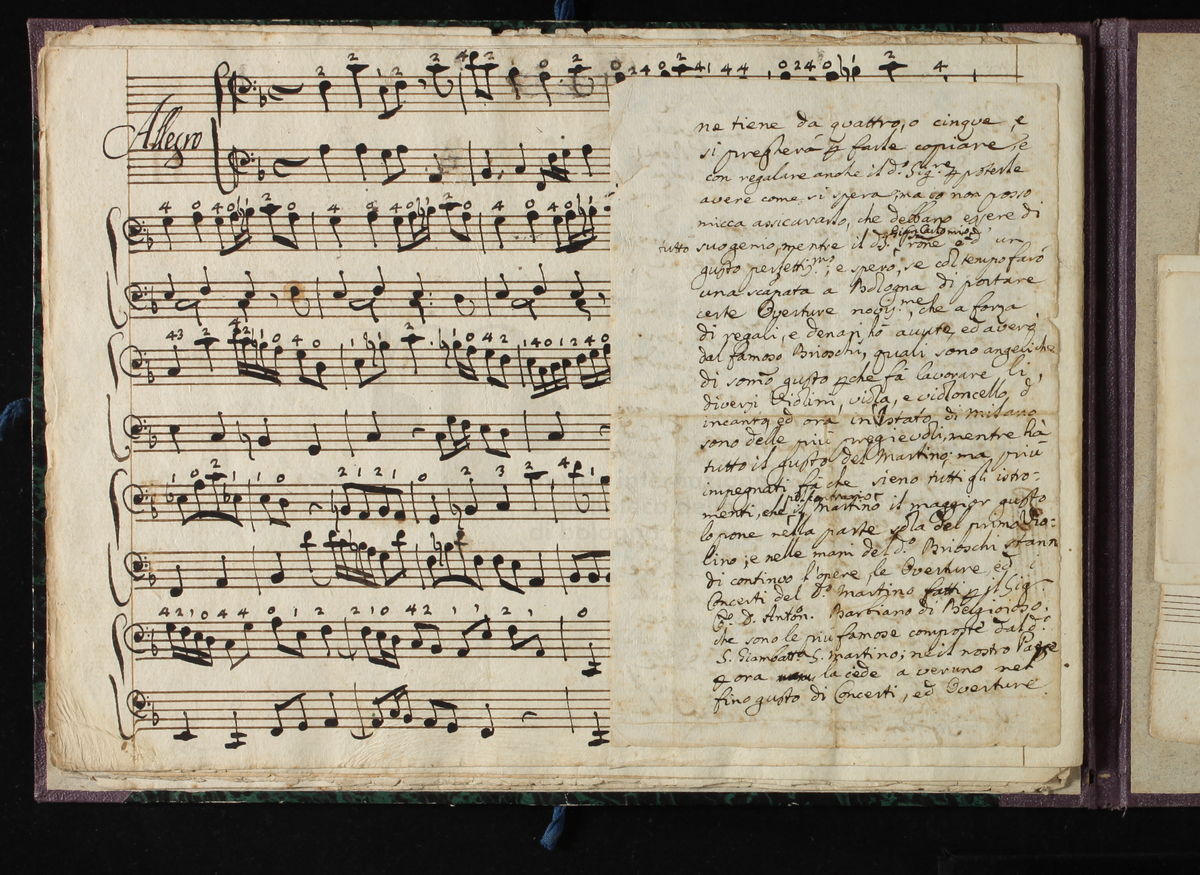 Allegro
ne tiene da quattro, o cinque, e
si pregherà p farle copiare, e
con regalare anche il d.º Sig.re p poterle
avere come si spera, ma io non posso
micca assicurarlo, che debbano essere di
tutto suo genio, mentre il d.º Sig.
gusto perfettis.mo; e spero, se col tempo farò
una scapata a Bologna di portare
certe Overture noviss.me, che a forza
di regali, e denari hò avute, ed averò
dal famoso Brioschi, quali sono angeliche
di somo gusto, pche fà lavorare li
diversi Violini, viola, e violoncello d'
incanto, ed ora in Stato di Milano
sono delle più pregievoli, mentre hà
tutto il gusto del Martino, ma più
impegnati fà che sieno tutti gli istro-
menti, che il Martino il maggior gusto
lo pone nella parte sola del primo Vio:
lino; e nelle mani del d.º Brioschi stann
di continuo l'opere, le Overture, ed i
Concerti del d.º Martino fatti p il Sig.
Co. D. Anton. Barbiano di Belgioioso,
che sono le più famose composte dal d.º
S. Giambatta S. Martino; ne il nostro Paese
e ora la cede a veruno nel
fino gusto di Concerti, ed Overture.